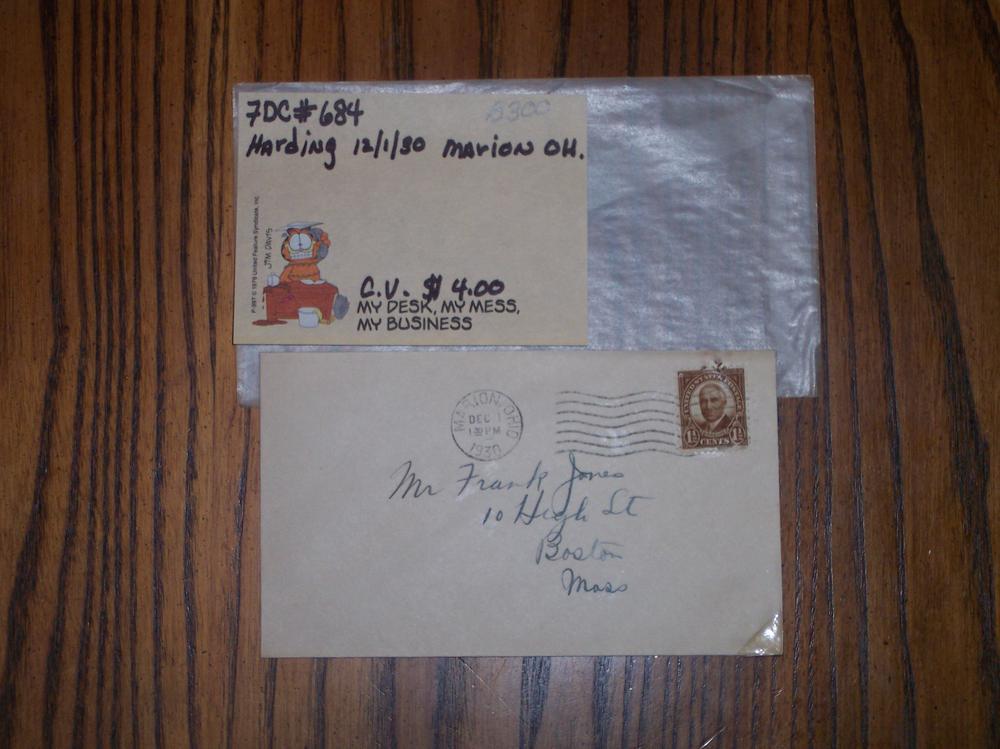 7DC#684
$300
Harding 12/1/30 Marion OH.
P-597 © 1978 United Feature Syndicate, Inc.
JIM DAVIS
C.V. $4.00
MY DESK, MY MESS,
MY BUSINESS
MARION, OHIO
DEC 1
PM
1930
UNITED STATES POSTAGE
1½ CENTS 1½
Mr Frank Jones
10 High St
Boston
Mass